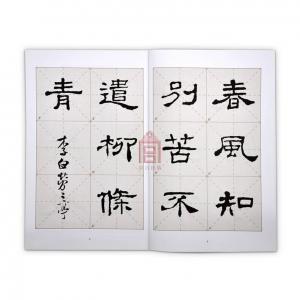 春風知
別苦不
遣柳條
青
李白勞勞亭